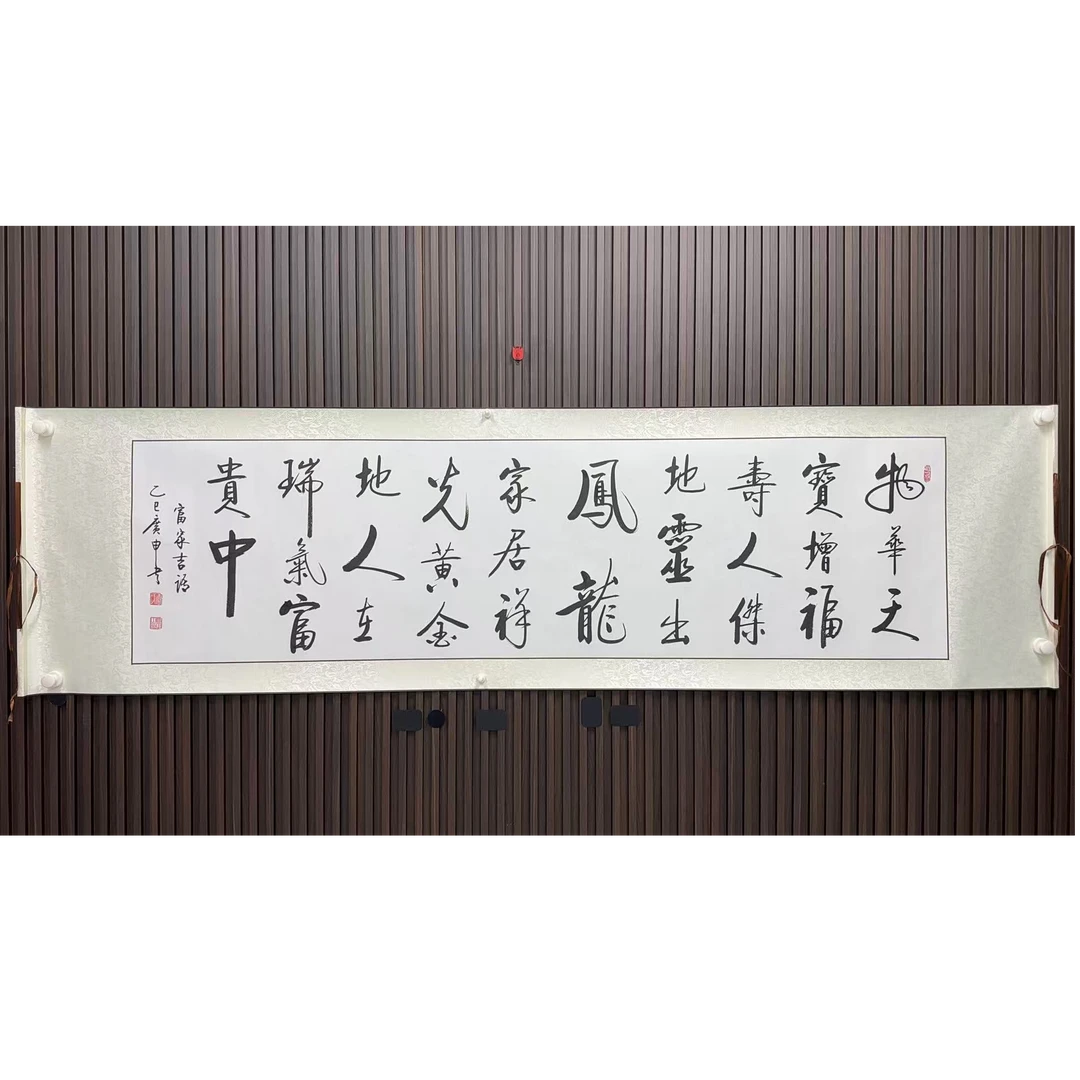 物華天
寶增福
壽人傑
地靈出
鳳龍
家居祥
光黃金
地人在
瑞氣富
貴中
富家吉語
乙巳廣申书